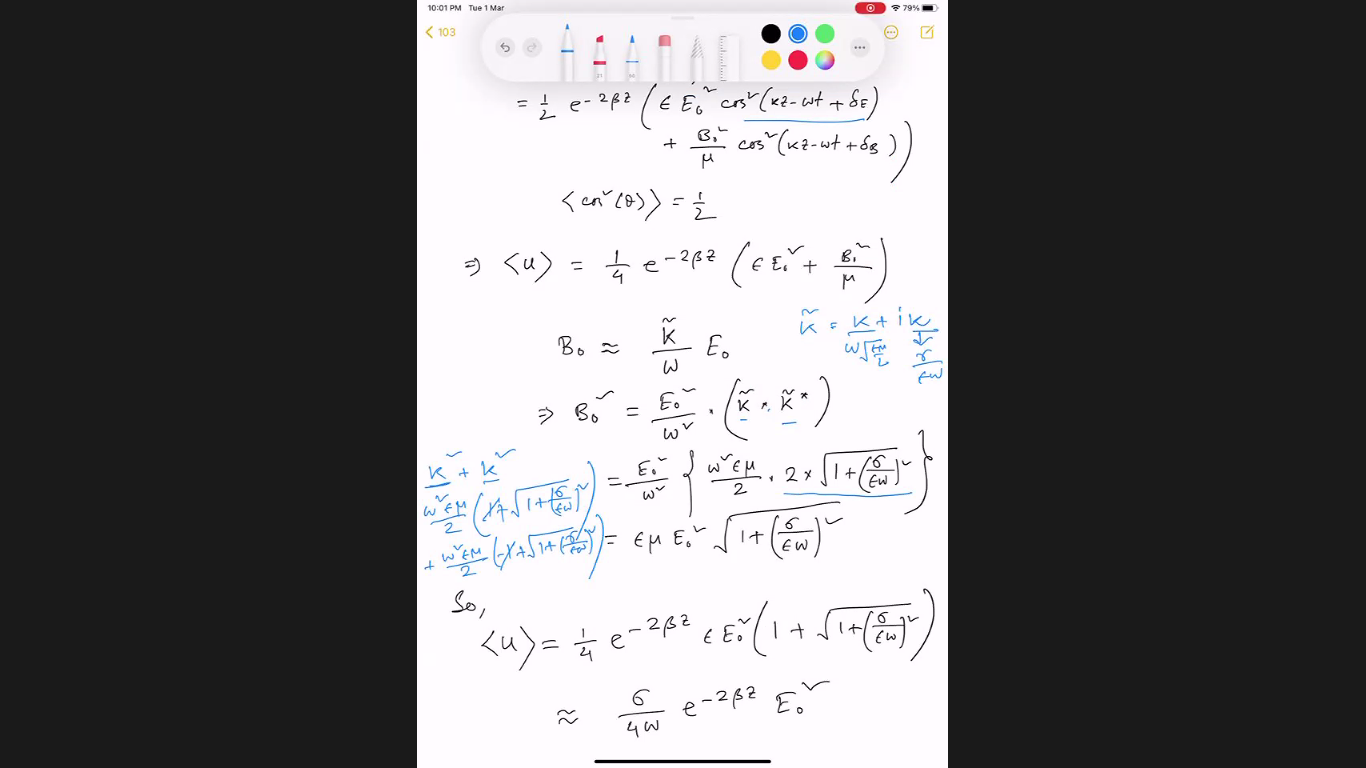 10:01 PM Tue 1 Mar 79%
103
= 1/2 e^{-2βz} (ϵ E₀² cos²(kz-ωt + δ_E)
+ B₀²/μ cos²(kz-ωt + δ_B))
⟨cos²(θ)⟩ = 1/2
⇒ ⟨u⟩ = 1/4 e^{-2βz} (ϵ E₀² + B₀²/μ)
B₀ ≈ k̃/ω E₀
k̃ = k + i κ
ω√(ϵμ/2)
σ/ϵω
⇒ B₀² = E₀²/ω² · (k̃ · k̃*)
k² + κ²
ω²ϵμ/2 (1+√(1+(σ/ϵω)²))
+ ω²ϵμ/2 (-1+√(1+(σ/ϵω)²))
= E₀²/ω² { ω²ϵμ/2 · 2 × √(1+(σ/ϵω)²) }
= ϵμ E₀² √(1+(σ/ϵω)²)
So,
⟨u⟩ = 1/4 e^{-2βz} ϵ E₀² (1 + √(1+(σ/ϵω)²))
≈ σ/4ω e^{-2βz} E₀²